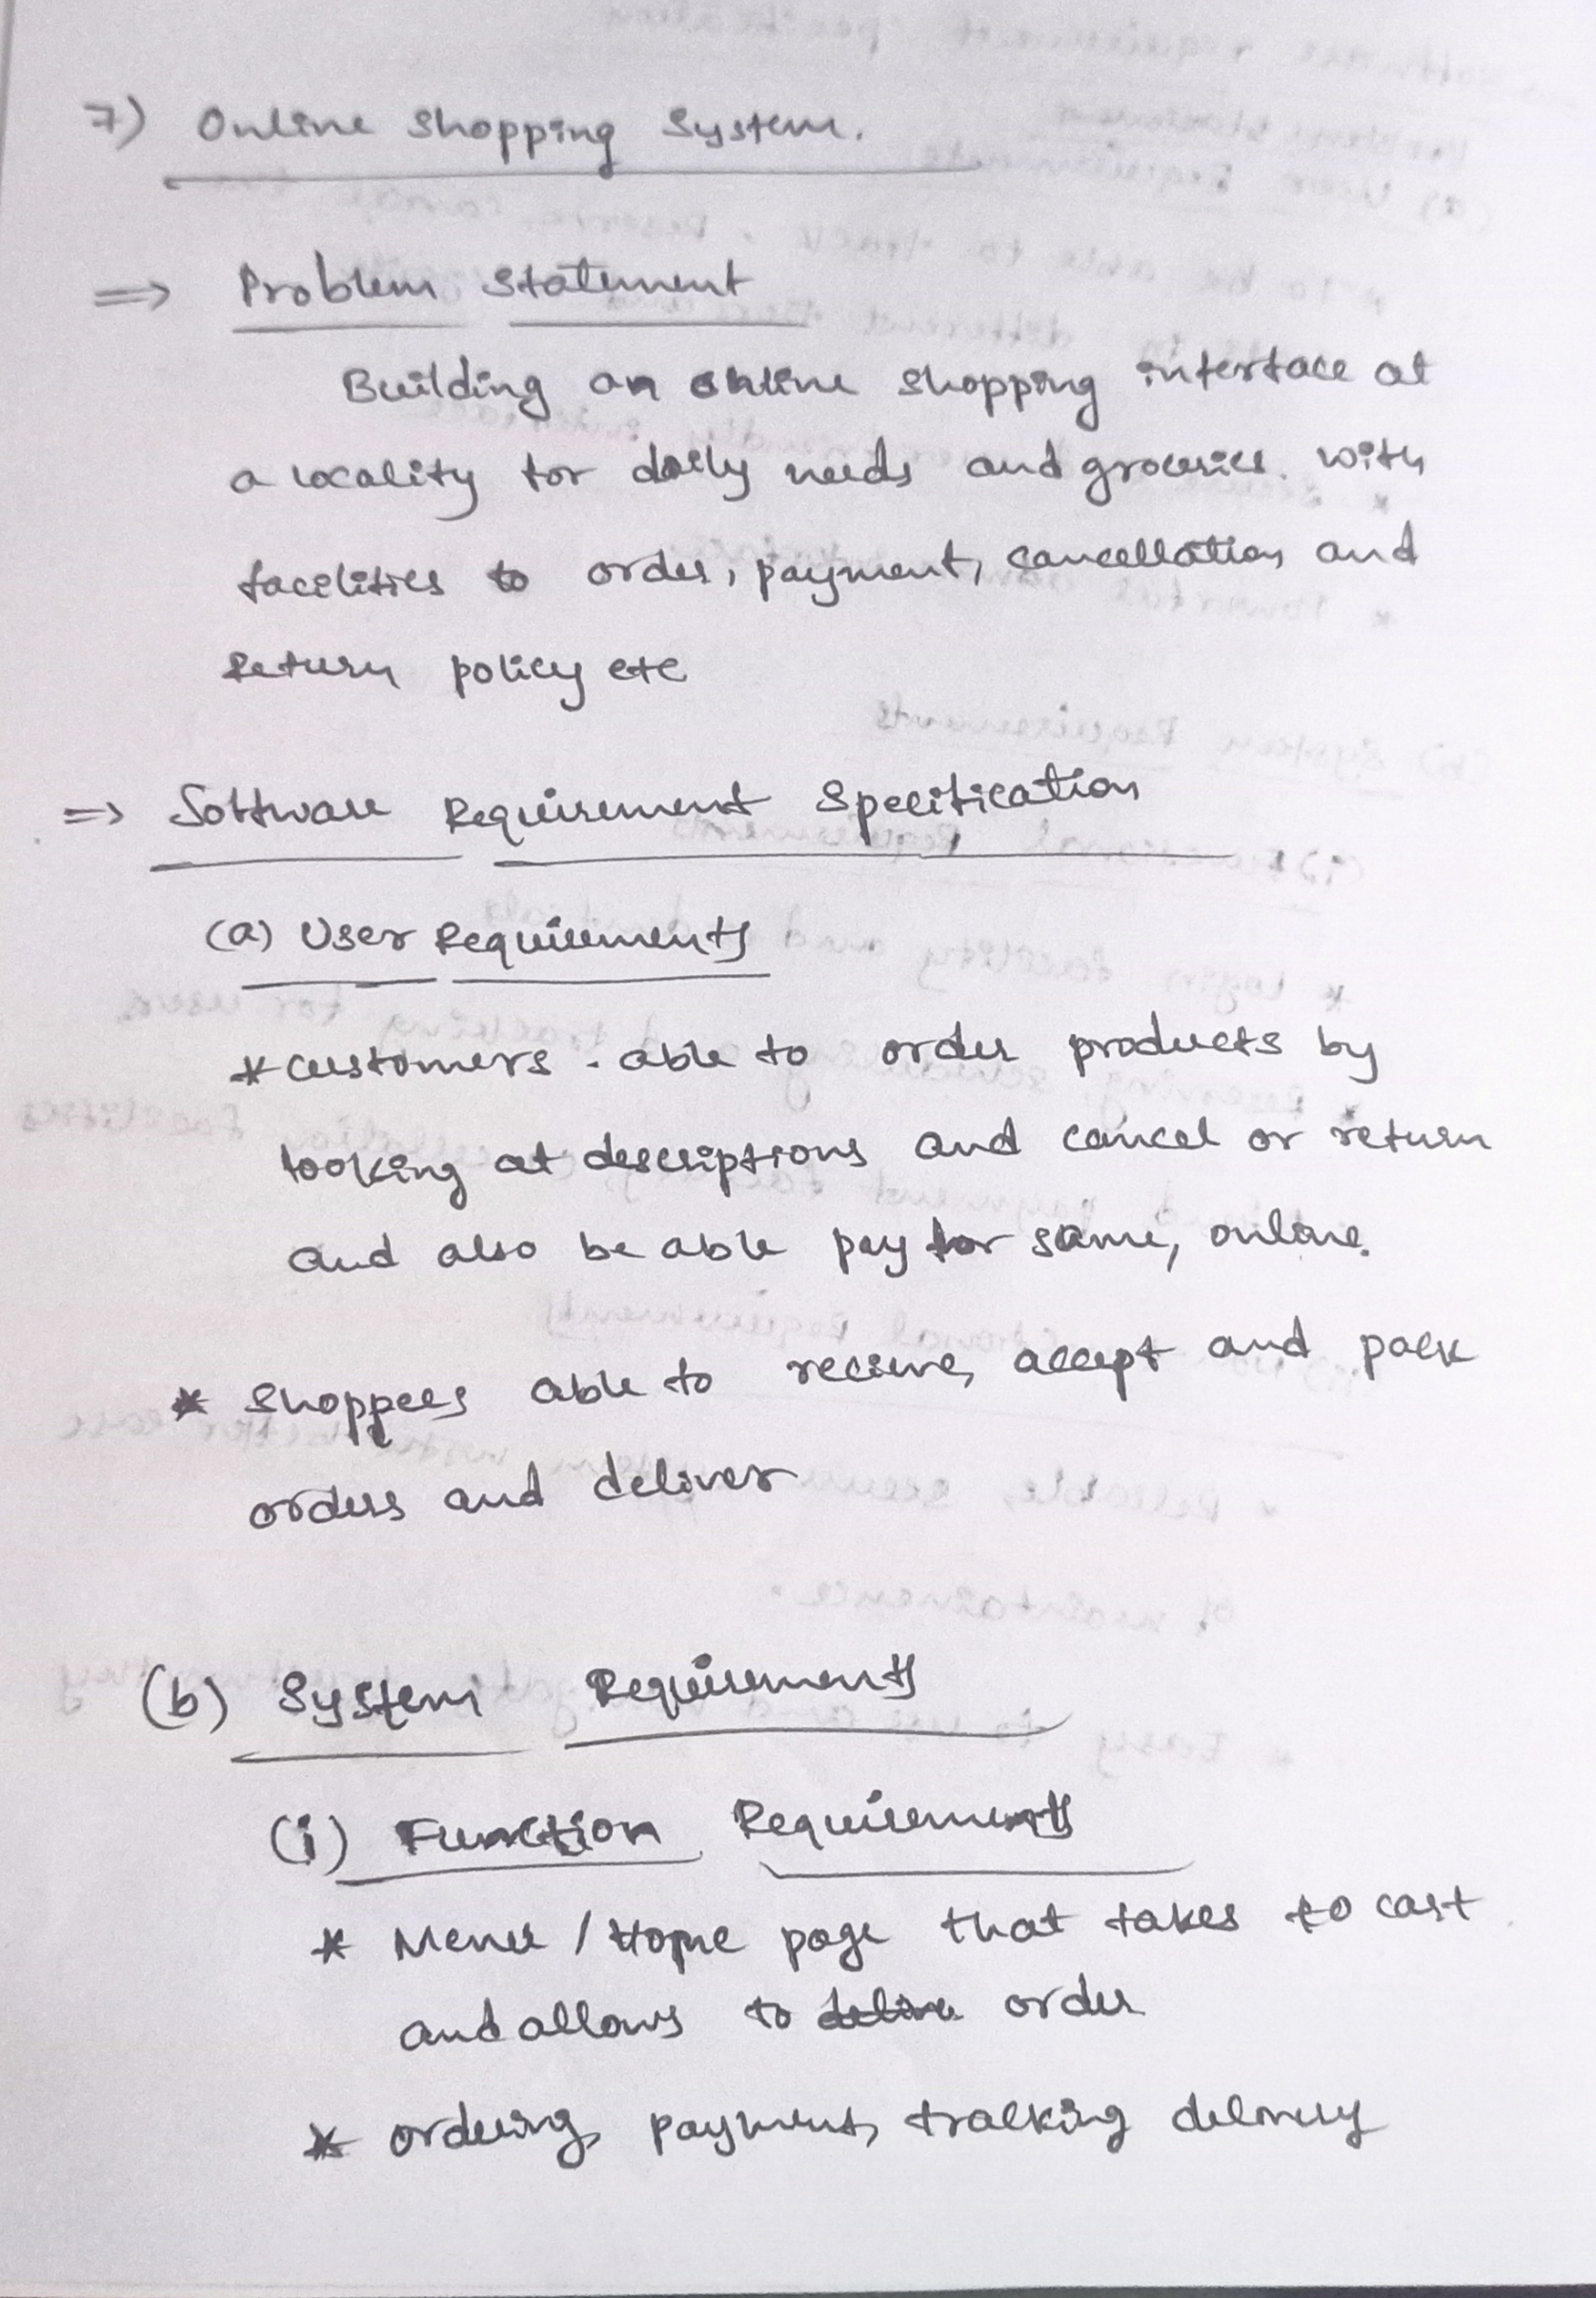 7) Online Shopping System.
=> Problem Statement
Building an online shopping interface at
a locality for daily needs and groceries. with
facilities to order, payment, cancellation and
Return policy etc
=> Software Requirement Specification
(a) User Requirements
* customers . able to order products by
looking at descriptions and cancel or return
and also be able pay for same, online.
* Shoppees able to recieve, accept and pack
orders and deliver
(b) System Requirements
(i) Function Requirements
* Menu / Home page that takes to cart
and allows to order
* ordering, payment, tracking delivery